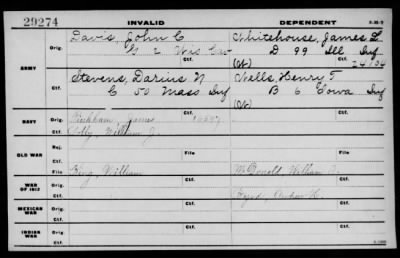 29274 INVALID DEPENDENT
ARMY
Orig. Davis, John C Whitehouse, James L
G 2 Wis Cav D 99 Ill Inf
Ctf. (W) Ctf. 24104
Stevens, Darius N Wells, Henry T
C 50 Mass Inf B 6 Iowa Inf
Ctf. (W)
NAVY
Orig. James
Ctf. William J.
OLD WAR
Rej.
Ctf. File File
WAR OF 1812
Orig. King, William McDonald, William
Ctf.
MEXICAN WAR
Orig.
Ctf.
INDIAN WAR
Orig.
Ctf.